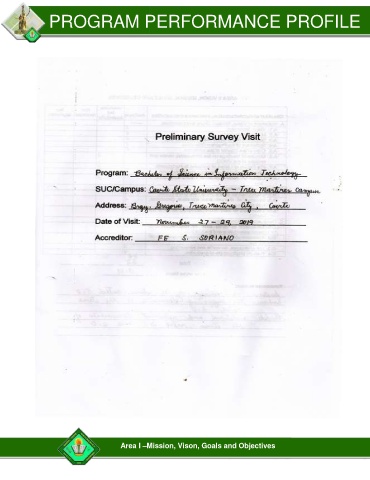 PROGRAM PERFORMANCE PROFILE
Preliminary Survey Visit
Program: Bachelor of Science in Information Technology
SUC/Campus: Cavite State University - Trece Martires Campus
Address: Brgy. Gregorio, Trece Martires City, Cavite
Date of Visit: November 27-29, 2019
Accreditor: FE S. SORIANO
Area I –Mission, Vison, Goals and Objectives